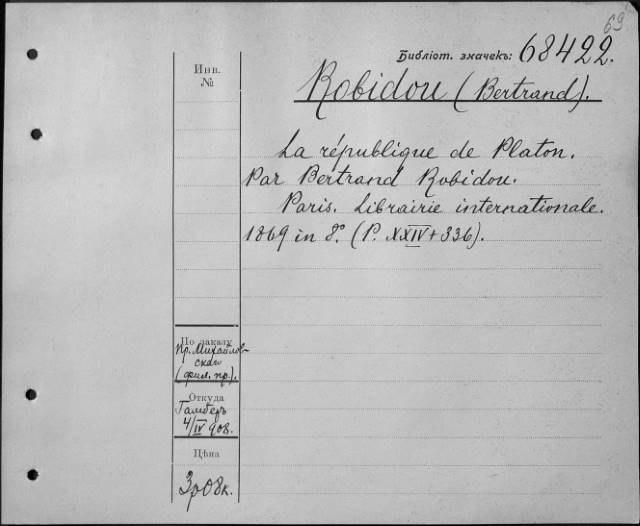 69
Библіот. значекъ: 68422.
Инв.
№
Robidou (Bertrand).
La république de Platon.
Par Bertrand Robidou.
Paris. Librairie internationale.
1869 in 8º. (P. XXIV + 336).
По заказу
Пр. Михайлов-
скаго
(фил. пр.).
Откуда
Гамберъ
4/IV 908.
Цѣна
3р08к.